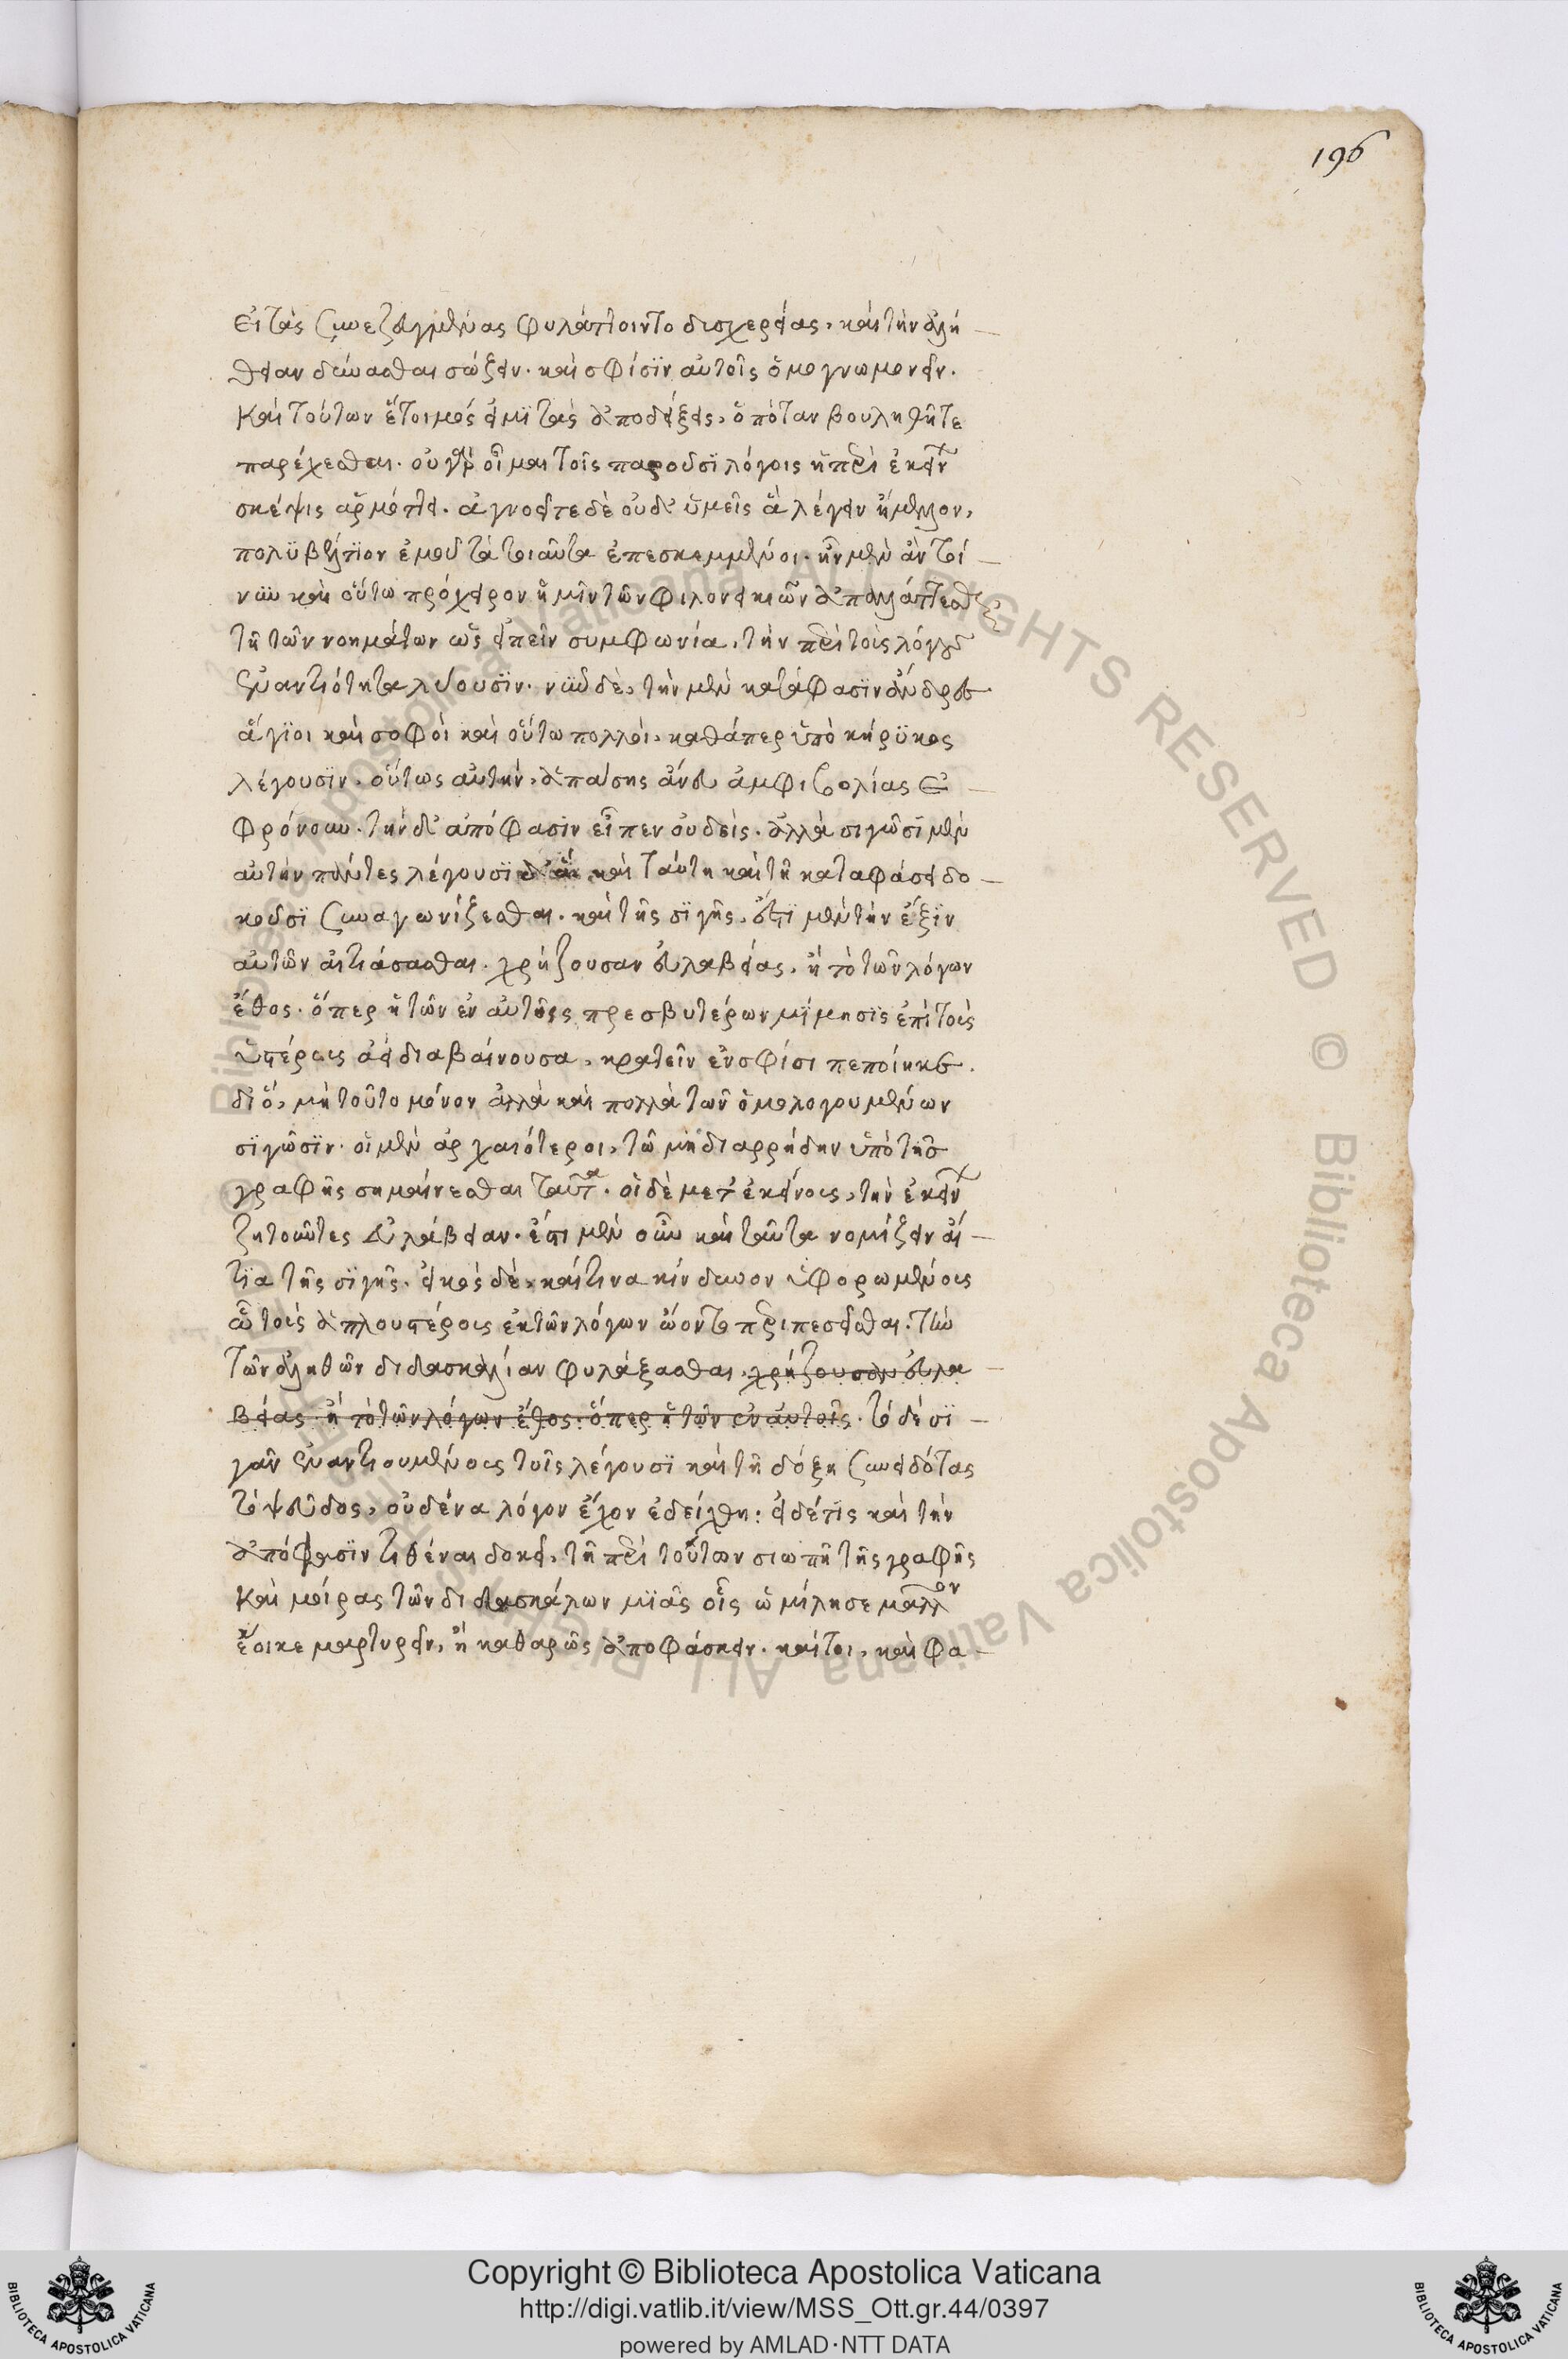 196
εἰ τὰς συνεζευγμένας φυλάττοιντο δυσχερείας, καὶ τὴν ἀλή
θειαν δύνασθαι σώζειν. καὶ σφίσϊν αὐτοῖς ὁμογνωμονεῖν.
Καὶ τούτων ἕτοιμός εἰμϊ τὰς ἀποδείξεις, ὁπόταν βουληθῆτε
παρέχεσθαι. οὐ γὰρ οἶμαι τοῖς παροῦσϊ λόγοις ἡ περὶ ἐκείνων
σκέψις ἁρμόττει. ἀγνοεῖτε δὲ οὐδ' ὑμεῖς ἃ λέγειν ἤμελλον,
πολϋ βέλτϊον ἐμοῦ τὰ τοιαῦτα ἐπεσκεμμένοι. ἦν μὲν ἂν τοί
νυν καὶ οὕτω πρόχειρον ἡμῖν τῶν φιλονεικιῶν ἀπαλλάττεσθαι
τῆ τῶν νοημάτων ὡς εἰπεῖν συμφωνία, τὴν περὶ τοὺς λόγους
ἐναντιότητα λύουσϊν. νῦν δὲ, τὴν μὲν κατάφασϊν ἄνδρες
ἅγϊοι καὶ σοφοὶ καὶ οὕτω πολλοὶ, καθάπερ ὑπὸ κήρϋκος
λέγουσϊν. οὕτως αὐτὴν, ἁπάσης ἄνευ ἀμφιβολίας ἐ
φρόνουν. τὴν δ' ἀπόφασϊν εἶπεν οὐδεὶς. ἀλλὰ σιγῶσϊ μὲν
αὐτὴν πάντες λέγουσϊ καὶ ταύτη καὶ τῆ καταφάσει δο
κοῦσϊ συναγωνίζεσθαι. καὶ τῆς σϊγῆς, ἔστϊ μὲν τὴν ἕξϊν
αὐτῶν αἰτιάσασθαι. χρήζουσαν εὐλαβείας, ἢ τὸ τῶν λόγων
ἔθος. ὅπερ ἡ τῶν ἐν αὐτοῖς πρεσβυτέρων μίμησϊς ἐπὶ τοὺς
ὑστέρους ἀεὶ διαβαίνουσα, κρατεῖν ἐν σφίσι πεποίηκε.
διὸ, μὴ τοῦτο μόνον ἀλλὰ καὶ πολλὰ τῶν ὁμολογουμένων
σϊγῶσϊν. οἱ μὲν ἀρχαιότεροι, τῶ μὴ διαρρήδην ὑπὸ τῆς
γραφῆς σημαίνεσθαι ταῦτα. οἱ δὲ μετ' ἐκείνους, τὴν ἐκείνων
ζητοῦντες εὐλάβειαν. ἔστι μὲν οὖν καὶ ταῦτα νομίζειν αἴ
τϊα τῆς σϊγῆς. εἰκὸς δὲ, καί τινα κίνδυνον ὑφορωμένους
ὧ τοὺς ἁπλουστέρους ἐκ τῶν λόγων ὤοντο περιπεσεῖσθαι. τὴν
τῶν ἀληθῶν διδασκαλίαν φυλάξασθαι. χρήζουσαν εὐλα
βείας. ἢ τὸ τῶν λόγων ἔθος. ὅπερ ἡ τῶν ἐν αὐτοῖς. τὸ δὲ σϊ
γᾶν ἐναντιουμένους τοῖς λέγουσϊ καὶ τῆ δόξη συνειδότας
τὸ ψεῦδος, οὐδένα λόγον ἔχον ἐδείχθη. εἰ δέ τϊς καὶ τὴν
ἀπόφασϊν τιθέναι δοκεῖ, τῆ περὶ τούτων σιωπῆ τῆς γραφῆς
καὶ μοίρας τῶν διδασκάλων μϊᾶς οἷς ὡμίλησε μᾶλλον
ἔοικε μαρτυρεῖν, ἢ καθαρῶς ἀποφάσκειν. καίτοι, καὶ φα
Copyright © Biblioteca Apostolica Vaticana
http://digi.vatlib.it/view/MSS_Ott.gr.44/0397
powered by AMLAD·NTT DATA